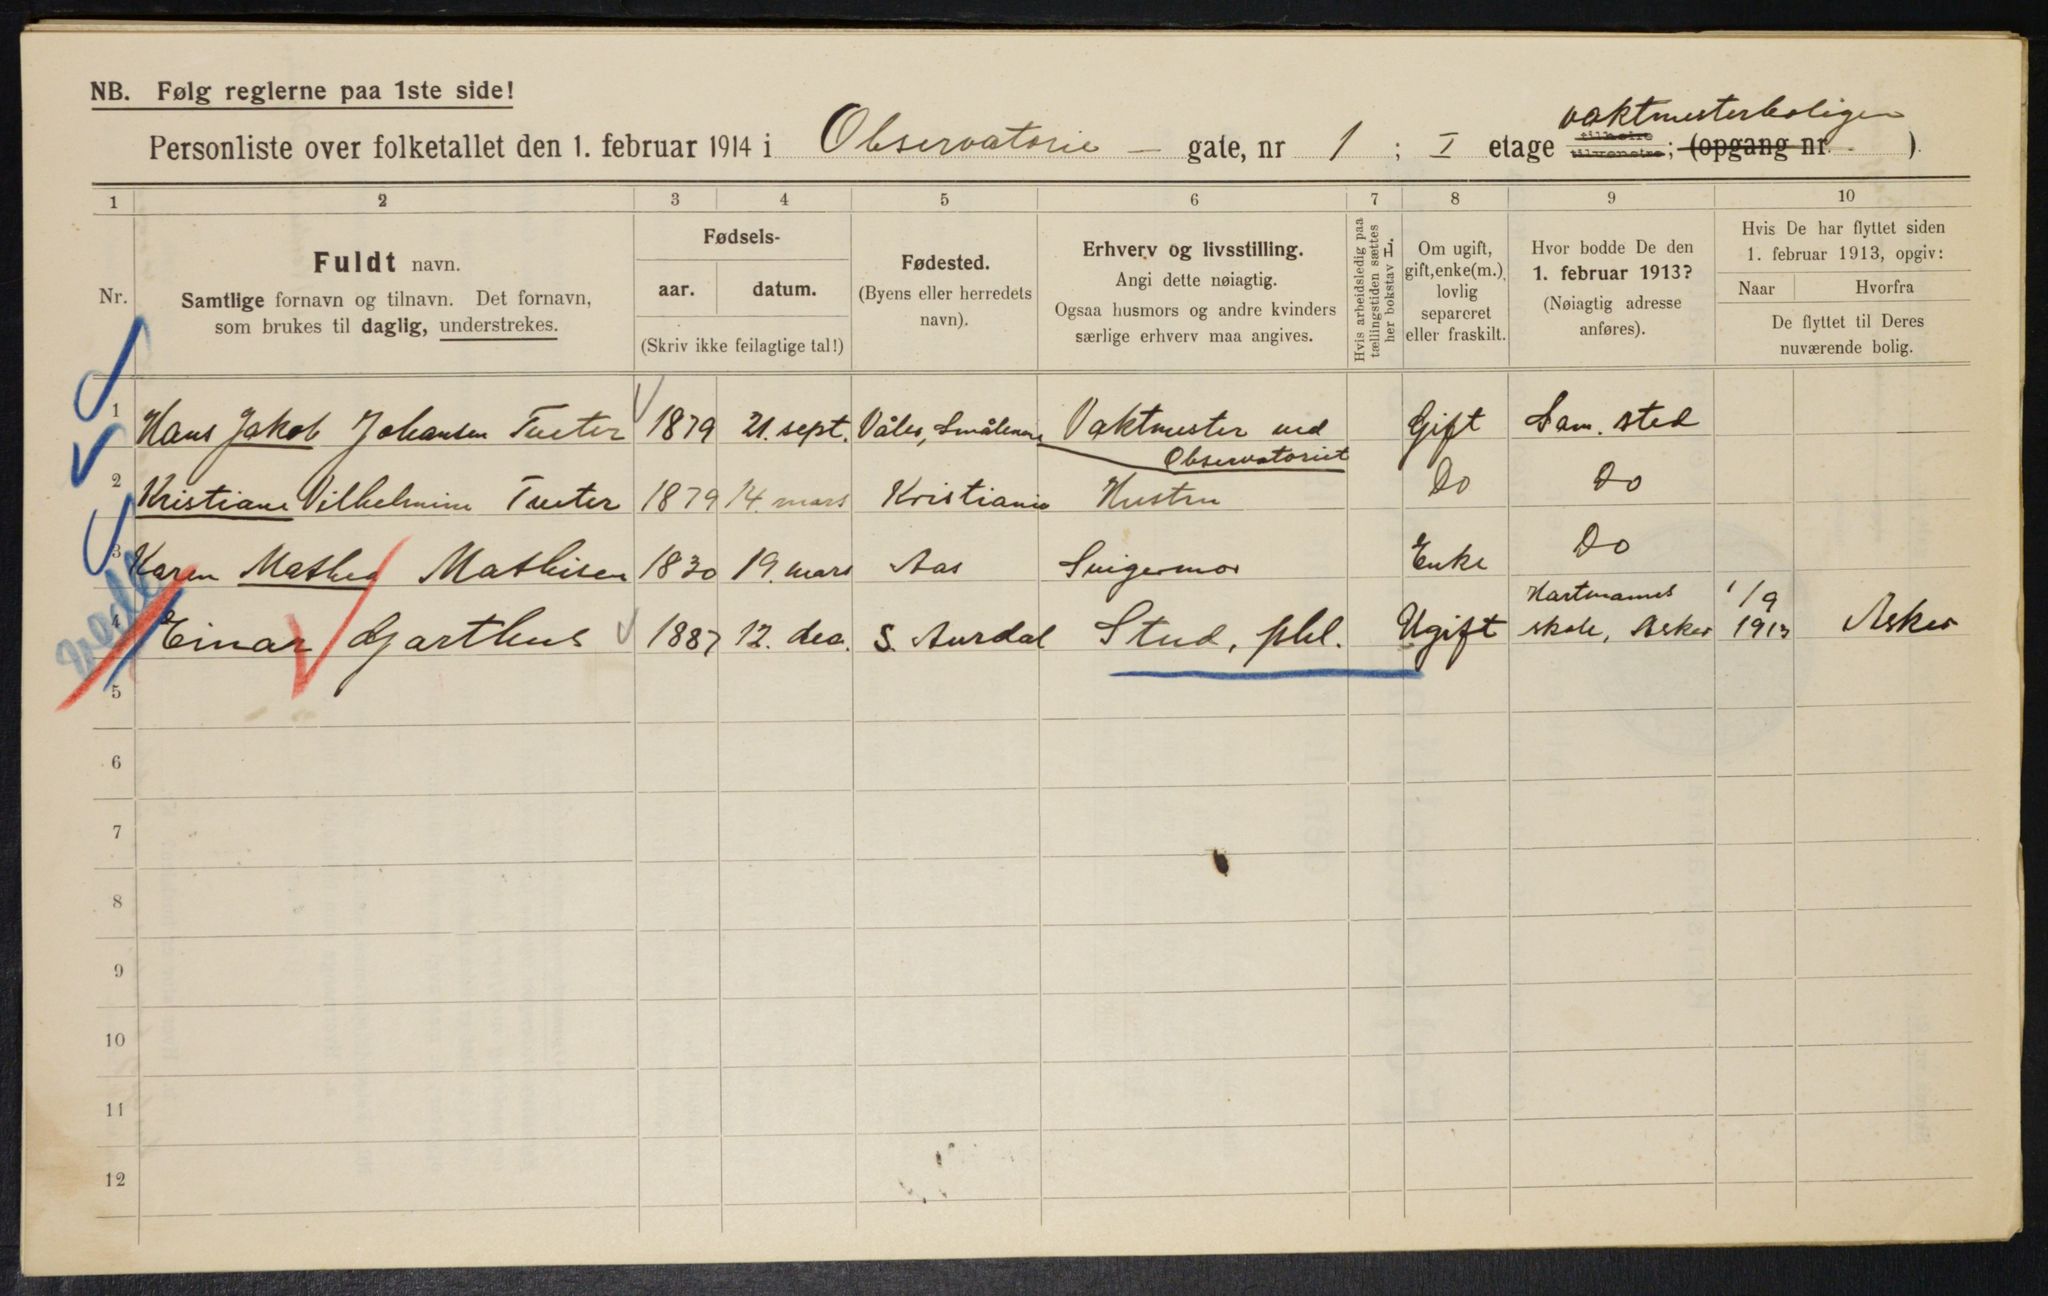 NB. Følg reglerne paa 1ste side!
vaktmesterboligen
Personliste over folketallet den 1. februar 1914 i Observatorie — gate, nr 1 ; I etage tilhøire tilvenstre; (opgang nr. ).
1 2 3 4 5 6 7 8 9 10
Nr.
Fuldt navn.
Samtlige fornavn og tilnavn. Det fornavn,
som brukes til daglig, understrekes.
Fødsels-
aar. datum.
(Skriv ikke feilagtige tal!)
Fødested.
(Byens eller herredets
navn).
Erhverv og livsstilling.
Angi dette nøiagtig.
Ogsaa husmors og andre kvinders
særlige erhverv maa angives.
Hvis arbeidsledig paa
tællingstiden sættes
her bokstav L.
Om ugift,
gift, enke(m.),
lovlig
separeret
eller fraskilt.
Hvor bodde De den
1. februar 1913?
(Nøiagtig adresse
anføres).
Hvis De har flyttet siden
1. februar 1913, opgiv:
Naar Hvorfra
De flyttet til Deres
nuværende bolig.
1 Hans Jakob Johansen Tueter 1879 21. sept. Våler, Smålenene Vaktmester ved Observatoriet Gift Sam. sted
2 Kristiane Vilhelmine Tueter 1879 14. mars Kristiania Hustru Do Do
3 Karen Mathea Mathisen 1830 19. mars Aas Svigermor Enke Do
4 Einar Gjarthus 1887 12. dec. S. Aurdal Stud. phil. Ugift Hartmanns skole, Asker 1/9 1913 Asker
5
6
7
8
9
10
11
12